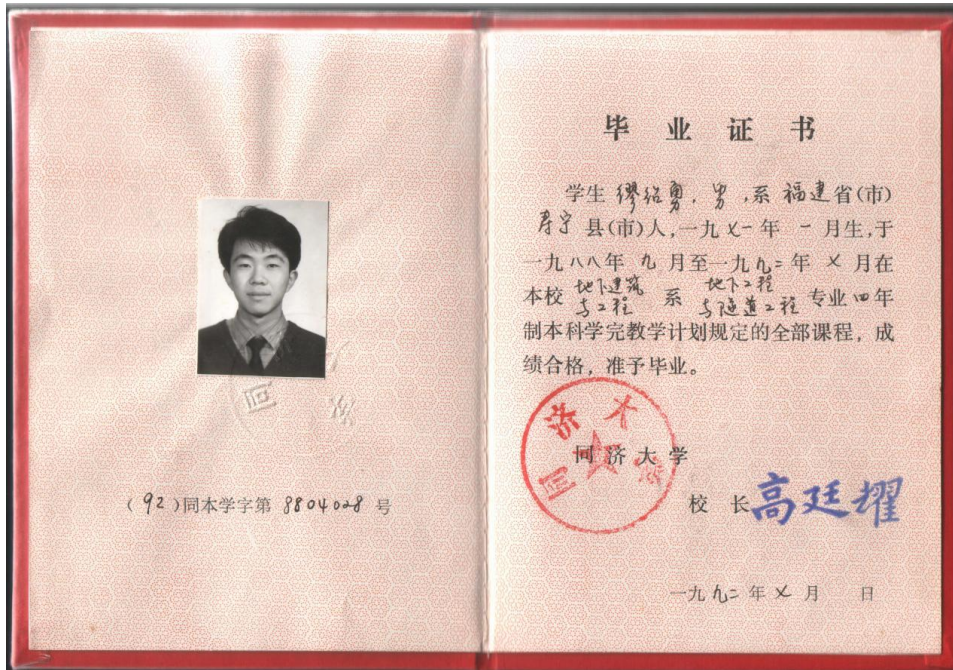 同济
(92)同本学字第 8804028 号
毕业证书
学生 缪绍勇,男,系 福建省(市)
寿宁县(市)人,一九七一年 一月生,于
一九八八年 九月至一九九二年 七月在
本校 地下建筑与工程 系 地下工程与隧道工程 专业四年
制本科学完教学计划规定的全部课程,成
绩合格,准予毕业。
同济大学
同济大学
校长 高廷耀
一九九二年七月 日